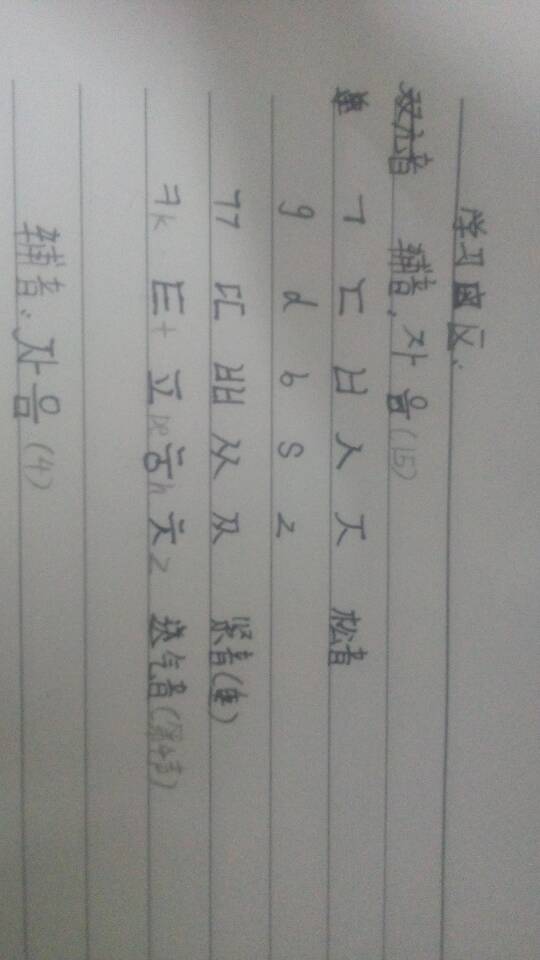 学习园区:
辅音. 자음(15)
ㄱ ㄷ ㅂ ㅅ ㅈ 松音
g d b s z
ㄲ ㄸ ㅃ ㅆ ㅉ 紧音(重)
ㅋk ㅌt ㅍ ㅎh ㅊ 送气音(第4声)
辅音: 자음(4)